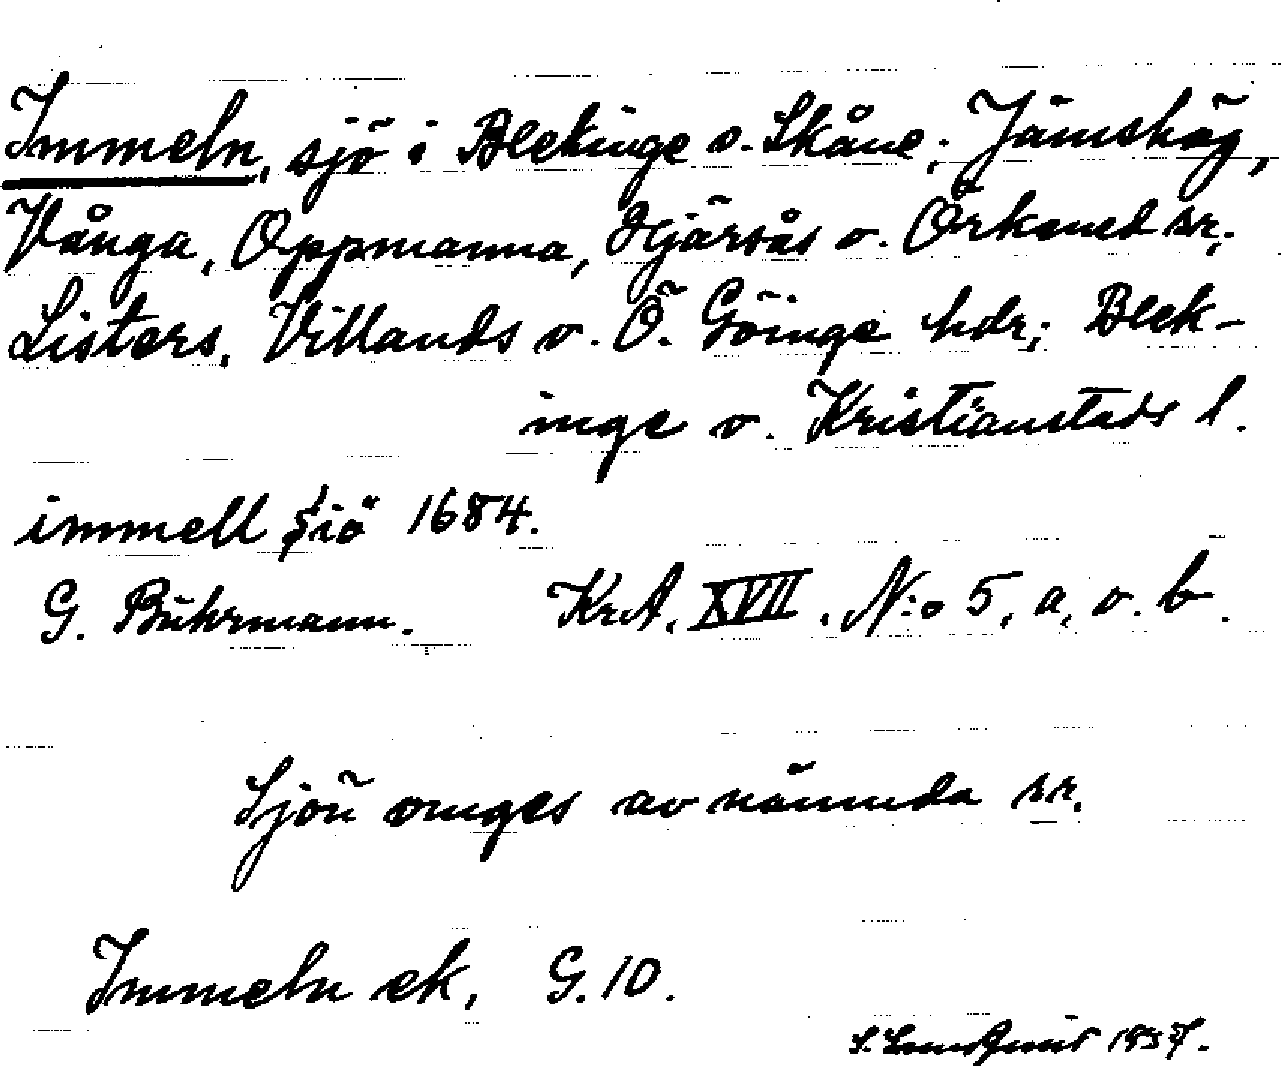 Immeln, sjö i Blekinge o. Skåne; Jämshög,
Vånga, Oppmanna, Hjärsås o. Örkened sr,
Listers, Villands o. Ö. Göinge hdr; Blek-
inge o. Kristianstads l.
immell siö 1684.
G. Buhrmann. KrA. XVII. N:o 5, a, o. b.
Sjön omges av nämnda sr.
Immeln ek, G. 10.
S. Lundquist 1937.